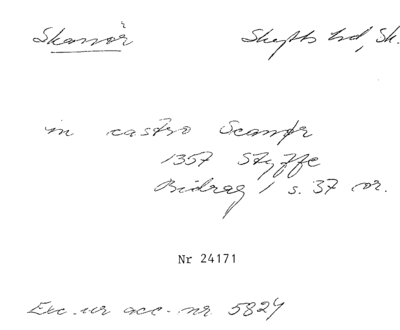 Skanör Skytts hd, Sk.
in castro Scanør
1357 Styffe
Bidrag 1 s. 37 or.
Nr 24171
Exc. ur acc. nr 5824